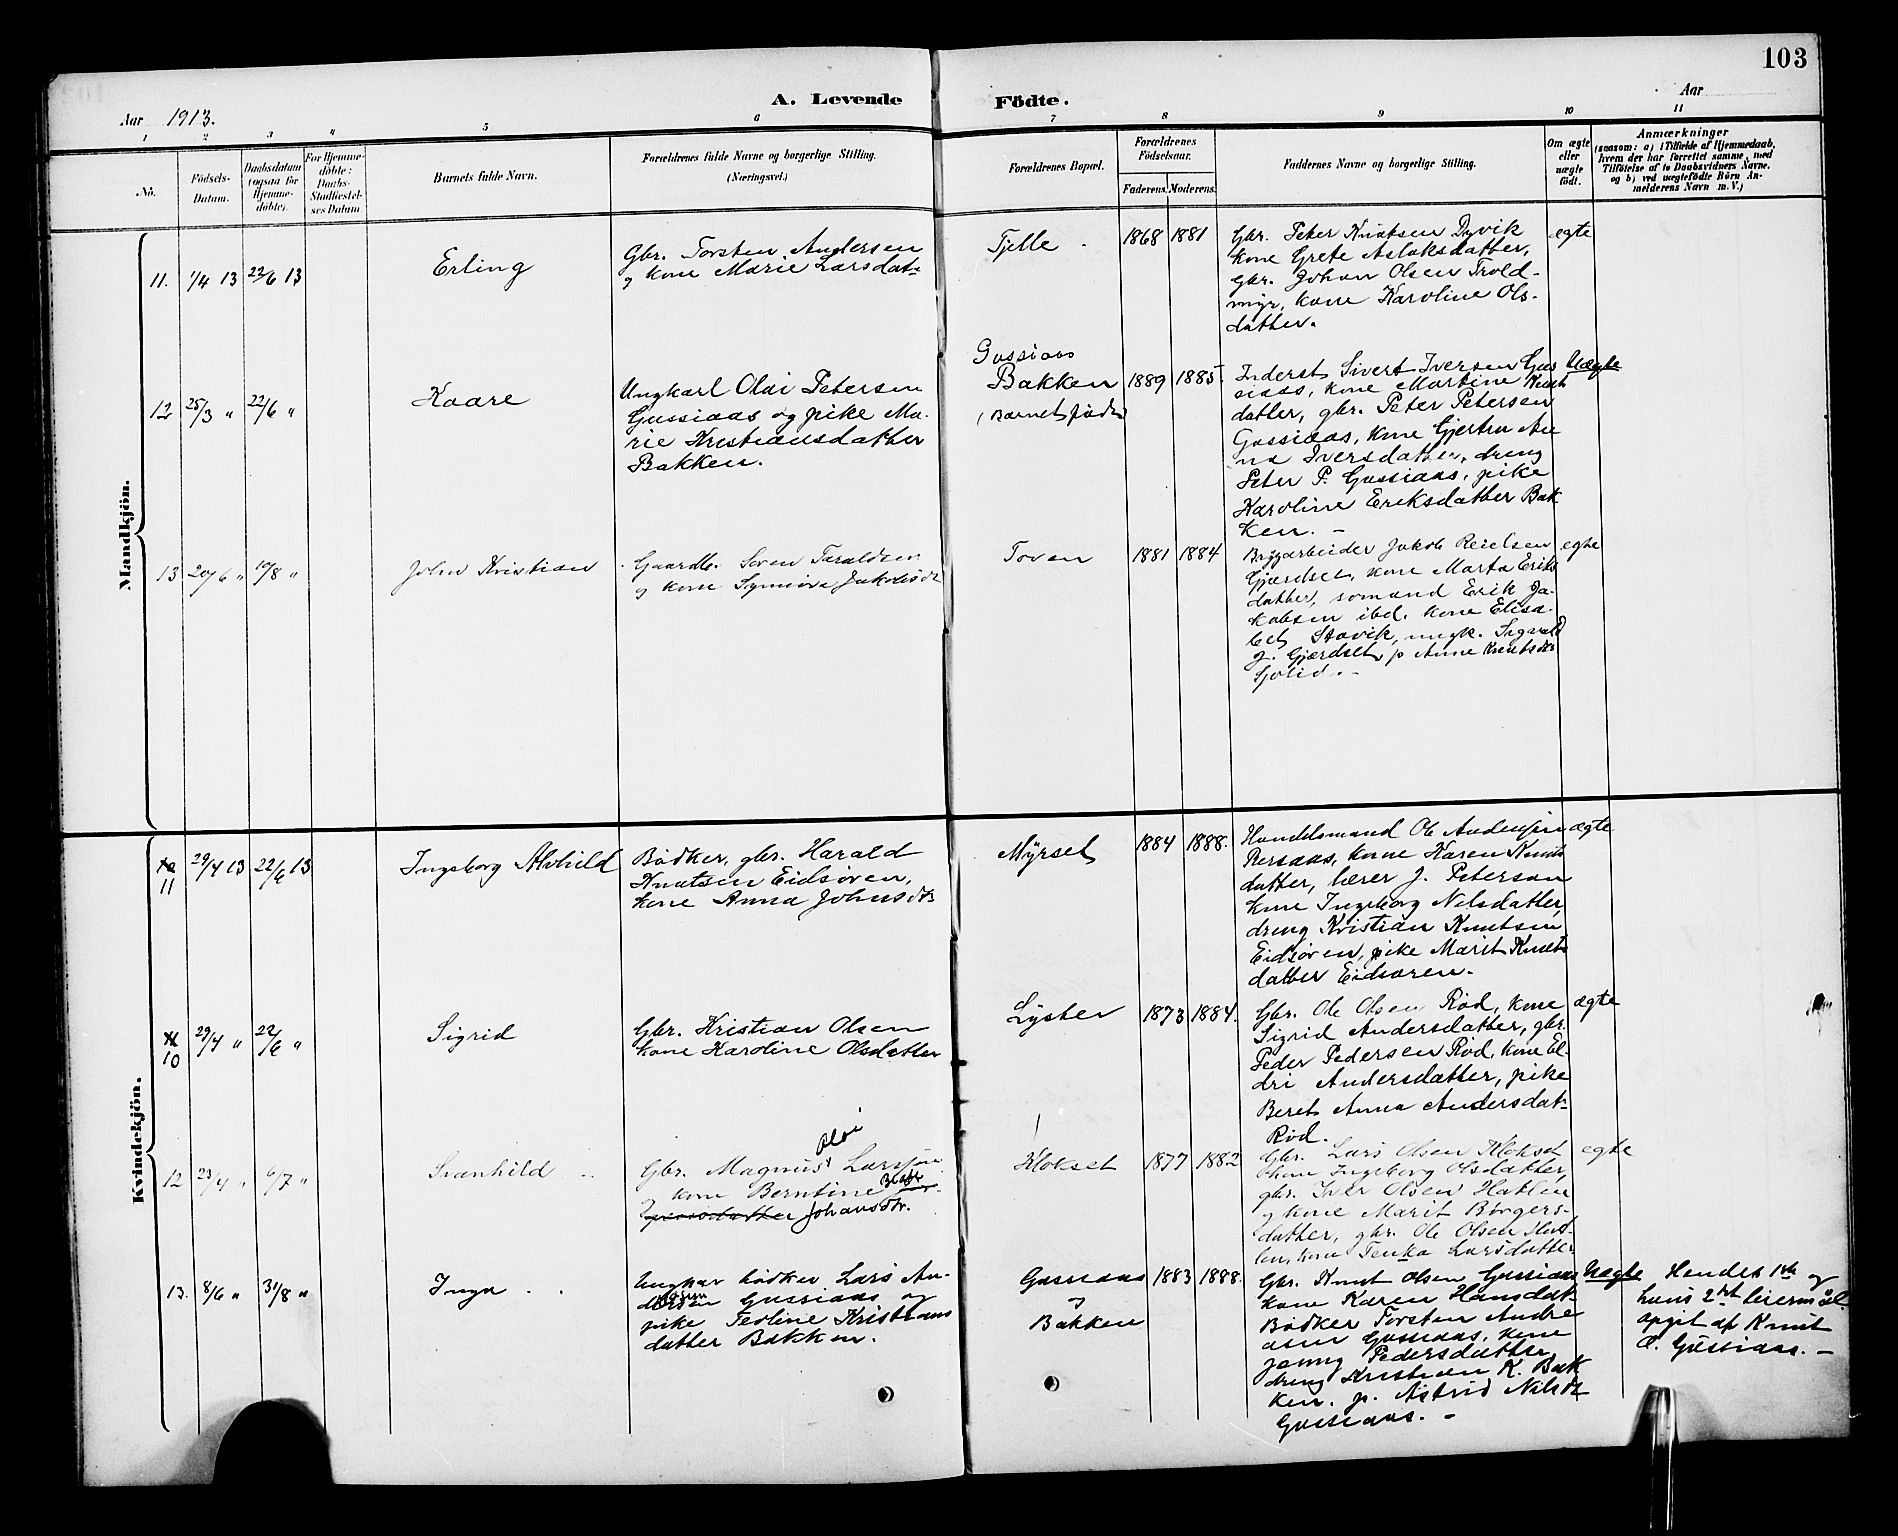 103
A. Levende Födte.
Aar 1913.
Aar
1 2 3 4 5 6 7 8 9 10 11
No.
Födsels-
Datum.
Daabsdatum
(ogsaa for
Hjemme-
döbte).
For Hjemme-
döbte:
Daabs-
Stadfæstel-
ses Datum.
Barnets fulde Navn.
Forældrenes fulde Navne og borgerlige Stilling.
(Næringsvei.)
Forældrenes Bopæl.
Forældrenes
Födselsaar.
Faderens. Moderens.
Faddernes Navne og borgerlige Stilling.
Om ægte
eller
uægte
födt.
Anmærkninger
(saasom: a) i Tilfælde af Hjemmedaab,
hvem der har forrettet samme, med
Tilföielse af to Daabsvidners Navne.
og b) ved uægtefödte Börn An-
melderens Navn m. V.)
Mandkjön.
11. 1/4 13 22/6 13
Erling
Gbr. Torsten Andersen
og kone Marie Larsdatr
Tjelle
1868 1881
Gbr. Peter Knutsen Dyvik
kone Grete Aslaksdatter,
gbr. Johan Olsen Trold-
myr, kone Karoline Ols-
datter.
egte
12 25/3 " 22/6 "
Kaare
Ungkarl Olai Petersen
Gussiaas og pike Ma-
rie Kristiansdatter
Bakken.
Gussiaas
Bakken
(Barnets føds
1889 1885.
Inderst Sivert Iversen Gus
siaas, kone Martine Knuts
datter, gbr. Peter Petersen
Gussiaas, kone Gjertru An
na Iversdatter, dreng
Peter P. Gussiaas, pike
Karoline Eriksdatter Bak
ken. -
Uægte
13 20/6 " 10/8 "
John Kristian
Gaardbr. Søren Taraldsen
og kone Synnöva Jakobsdt
Toven
1881 1884
Bryggarbeider Jakob Reielsen
Gjerdset, kone Marta Eriks
datter, sømand Erik Ja-
kobsen ibd. kone Elisa-
bet Stavik, ungk. Sigvald
J. Gjerdset, p Anne Knutsdtr
Sjølid. -
egte
Kvindekjön.
11 29/4 13 22/6 13
Ingeborg Alvhild
Bødker, gbr. Harald
Knutsen Eidsøren,
kone Anna Johnsdtr
Myrset
1884 1888.
Handelsmand Ole Andersen
kone Karen Knuts
datter, lærer J. Peterson
kone Ingeborg Nilsdatter,
dreng Kristian Knutsen
Eidsøren, pike Marit Knuts
datter Eidsøren.
ægte
10 29/4 " 22/6 "
Sigrid
Gbr. Kristian Olsen
kone Karoline Olsdatter
Lyster
1873 1884.
Gbr. Ole Olsen Rød, kone
Sigrid Andersdatter, gbr.
Peder Pedersen Rød, kone El-
dri Andersdatter, pike
Berit Anna Andersdat-
Rød.
ægte
12 23/4 " 6/7 "
Svanhild
Olai
Gbr. Magnus Larssen
og kone Berntine
Johansdtr.
Klokset
1877 1882
Gbr. Lars Olsen Klokset
kone Ingeborg Olsdatter,
gbr. Iver Olsen Hatlen
og kone Marit Børgers-
datter, gbr. Ole Olsen Hat-
len, kone Larsdatter
egte
13. 8/6 " 31/8 "
Inga
Ungkar bødker Lars An-
dersen Gussiaas og
pike Teoline Kristians
datter Bakken.
Gussiaas
og
Bakken
1883 1888.
Gbr. Knut Olsen Gussiaas
kone Karen Hansdat-
Bødker Torsten Andre
asen Gussiaas, kone
Jonny Pedersdatter
dreng Kristian K. Bak
ken. p. Astrid Nilsdt
Gussiaas. -
Uægte
Hendes 1ste og
hans 2det leiermål.
opgit af Knut
O. Gussiaas. -